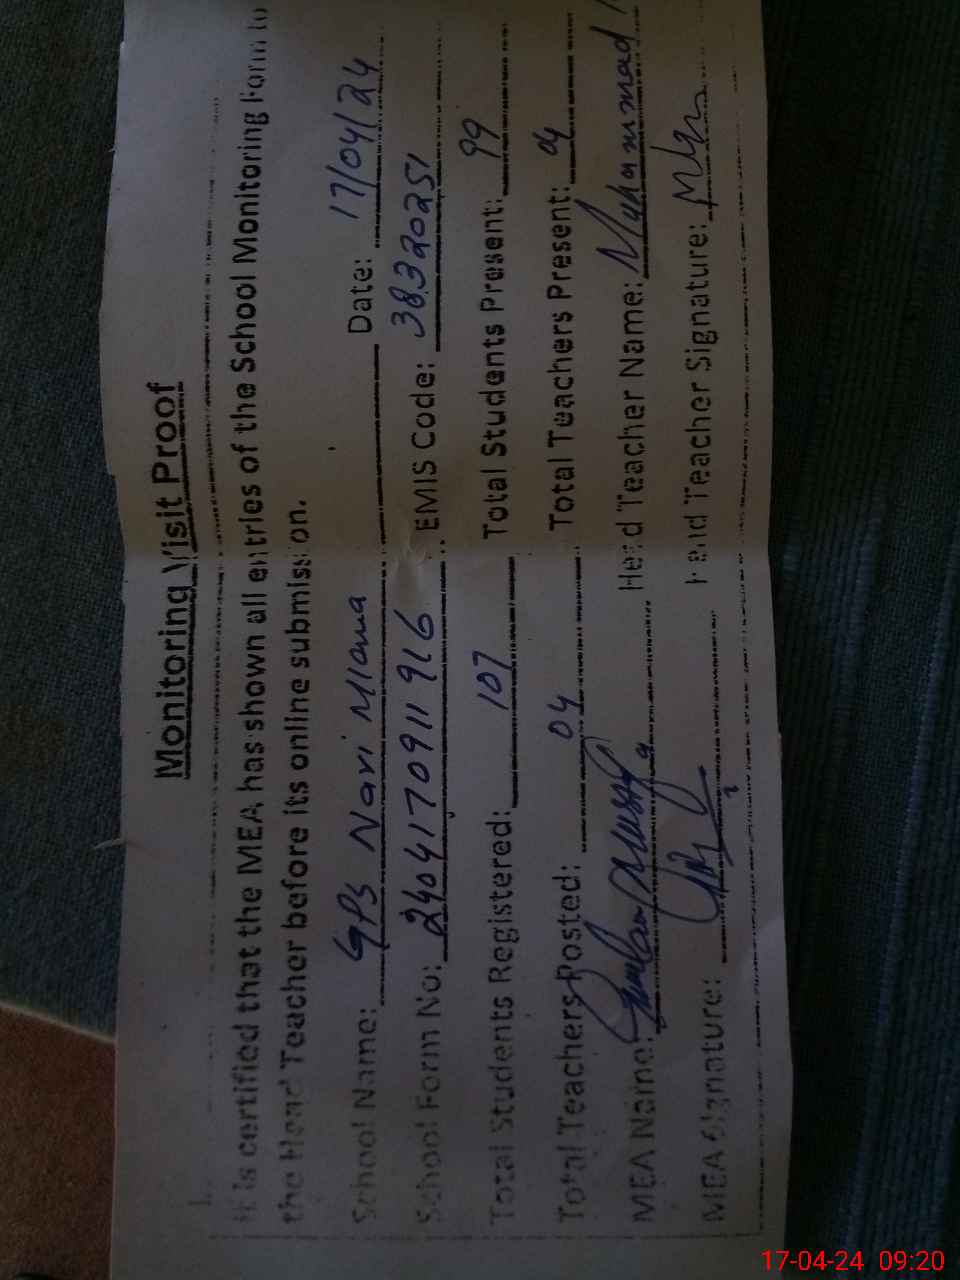 Monitoring Visit Proof
It is certified that the MEA has shown all entries of the School Monitoring Form to
the Head Teacher before its online submission.
School Name: GPS Navi Miana Date: 17/04/24
School Form No: 240417091916 EMIS Code: 38320251
Total Students Registered: 107 Total Students Present: 99
Total Teachers Posted: 04 Total Teachers Present: 04
MEA Name: Head Teacher Name: Muhammad
MEA Signature: Head Teacher Signature:
17-04-24 09:20